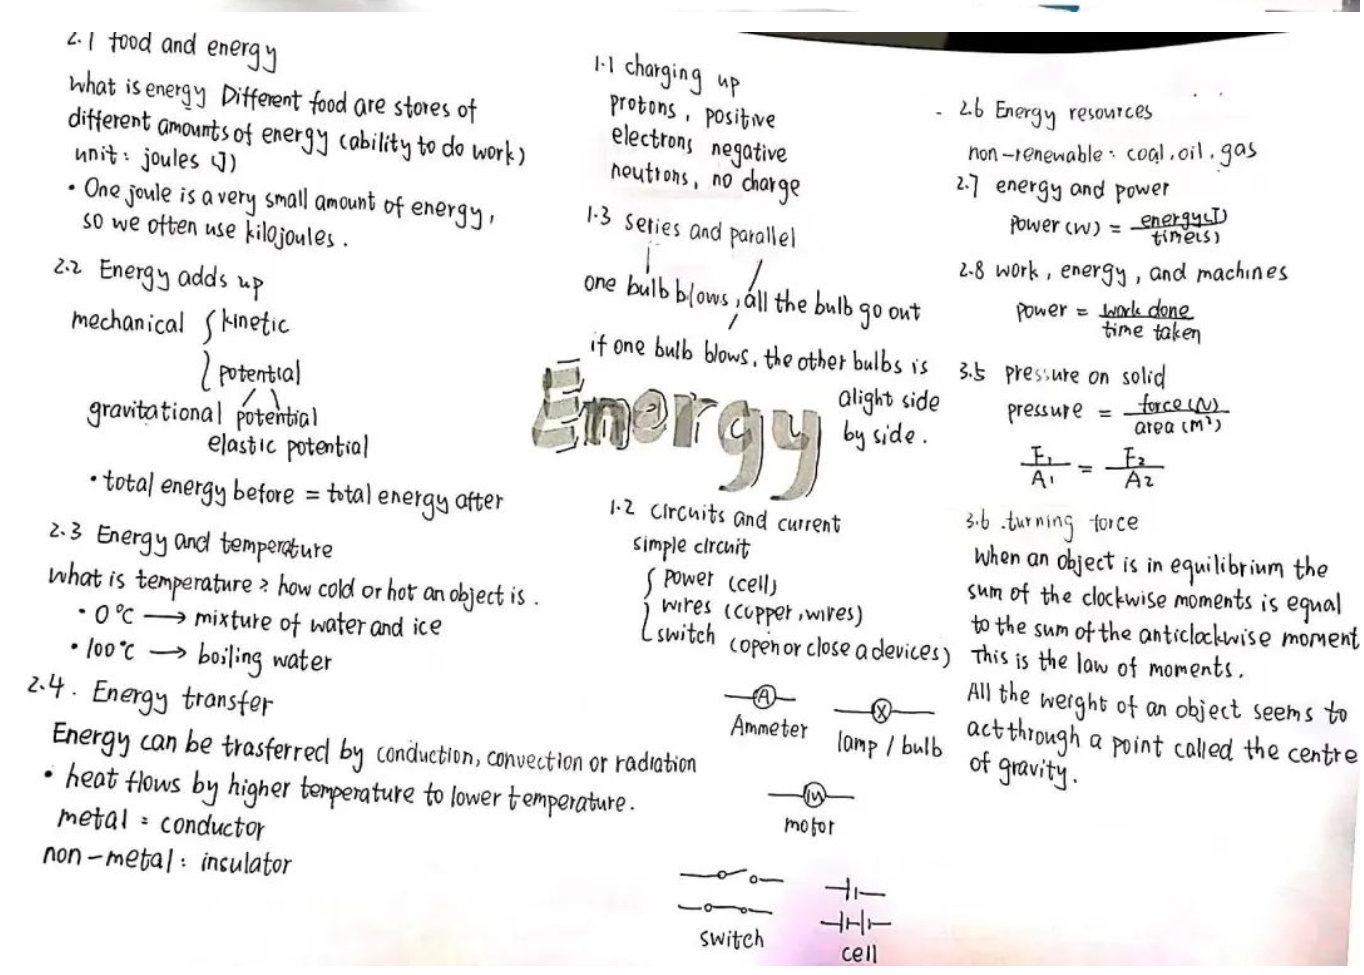 2.1 food and energy
What is energy Different food are stores of
different amounts of energy (ability to do work)
unit: joules (J)
• One joule is a very small amount of energy,
so we often use kilojoules.
2.2 Energy adds up
mechanical { kinetic
potential
gravitational potential
elastic potential
• total energy before = total energy after
2.3 Energy and temperature
What is temperature? how cold or hot an object is.
• 0°C → mixture of water and ice
• 100°C → boiling water
2.4. Energy transfer
Energy can be trasferred by conduction, convection or radiation
• heat flows by higher temperature to lower temperature.
metal: conductor
non-metal: insulator
1.1 charging up
protons, positive
electrons negative
neutrons, no charge
1.3 series and parallel
one bulb blows, all the bulb go out
if one bulb blows, the other bulbs is
alight side
by side.
Energy
1.2 circuits and current
simple circuit
{ power (cell)
wires (copper, wires)
switch (open or close a devices)
A
Ammeter
X
lamp / bulb
M
motor
switch
cell
2.6 Energy resources
non-renewable: coal, oil, gas
2.7 energy and power
Power (W) = energy(J)
time(s)
2.8 work, energy, and machines
Power = work done
time taken
3.5 pressure on solid
pressure = force (N)
area (M²)
F₁ = F₂
A₁ A₂
3.6 .turning force
When an object is in equilibrium the
sum of the clockwise moments is equal
to the sum of the anticlockwise moment
This is the law of moments.
All the weight of an object seems to
act through a point called the centre
of gravity.